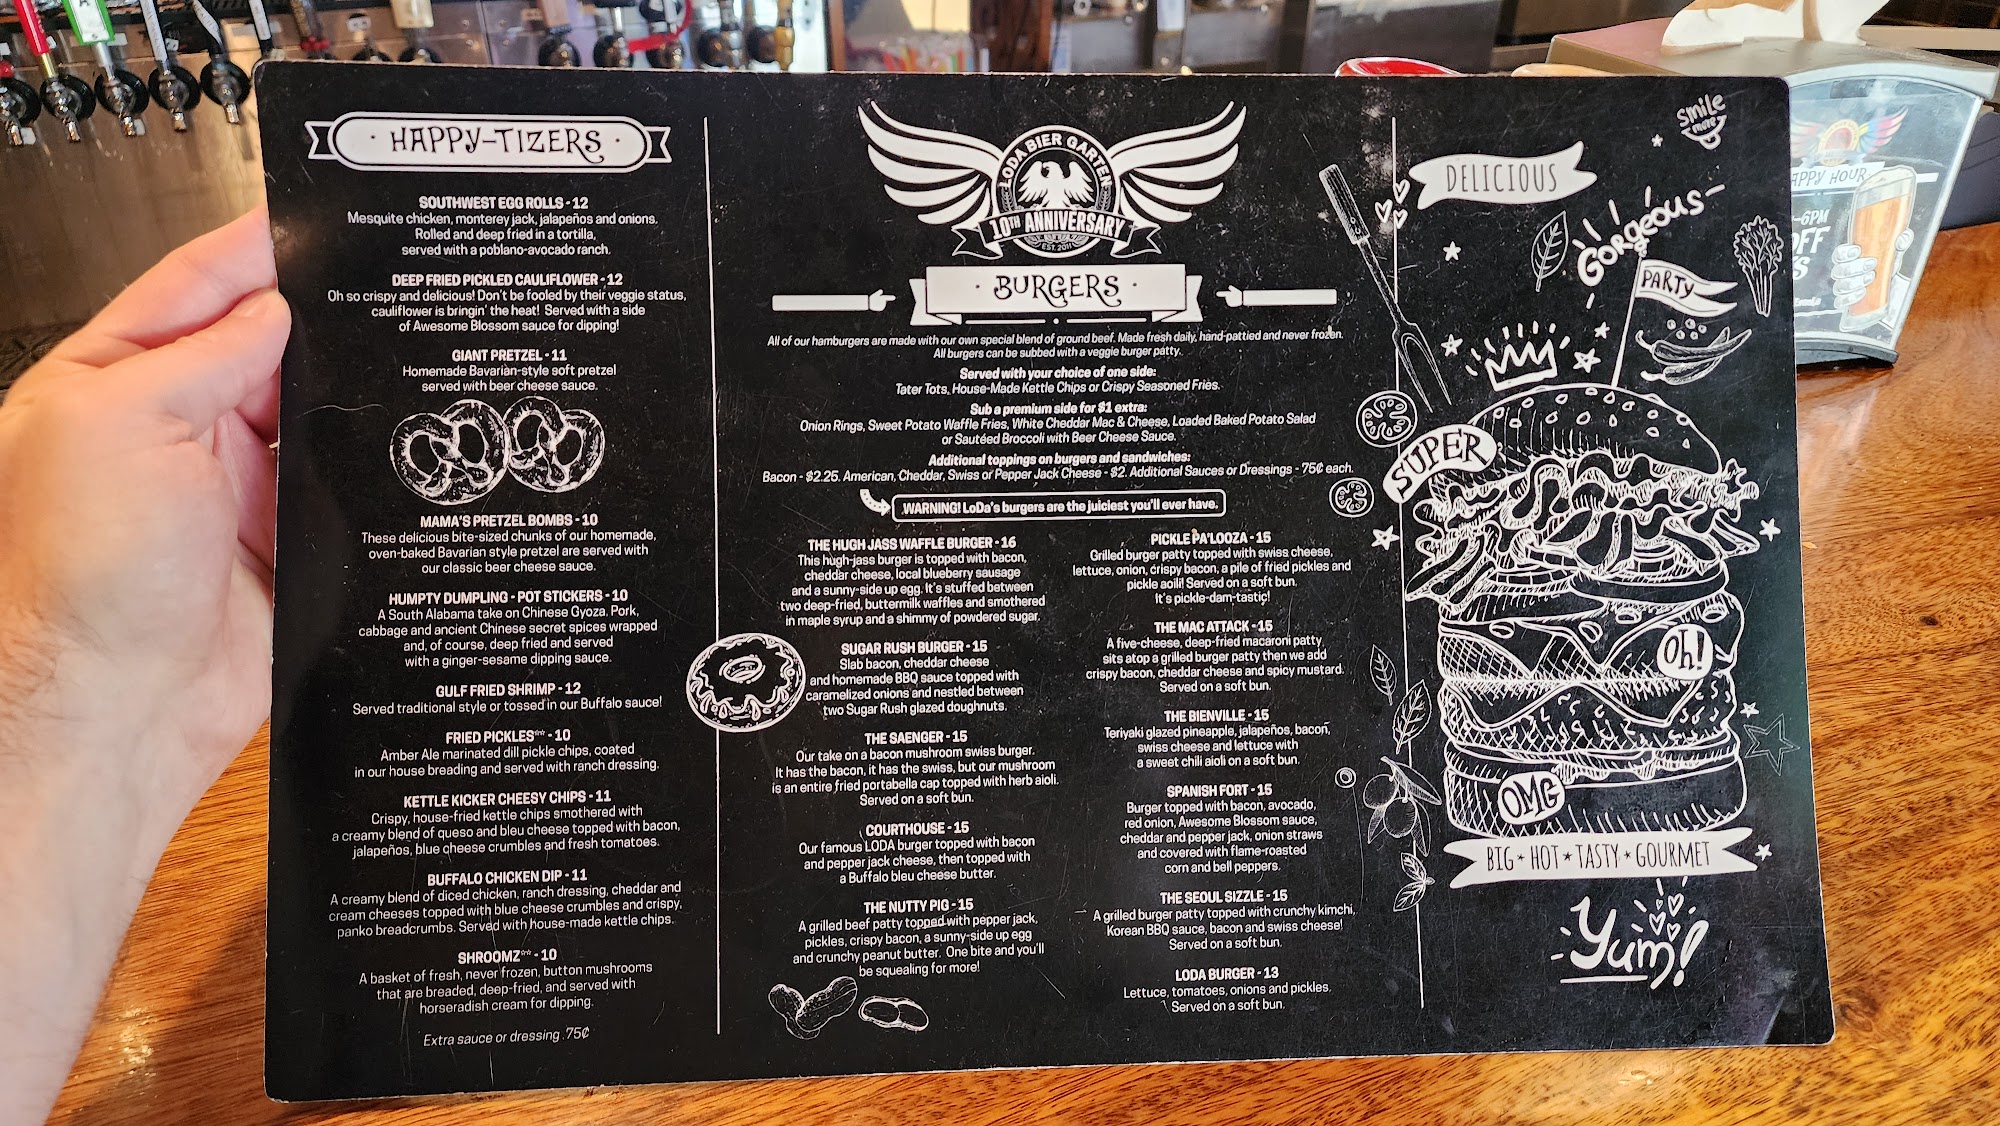 · HAPPY-TIZERS ·
SOUTHWEST EGG ROLLS - 12
Mesquite chicken, monterey jack, jalapeños and onions.
Rolled and deep fried in a tortilla,
served with a poblano-avocado ranch.
DEEP FRIED PICKLED CAULIFLOWER - 12
Oh so crispy and delicious! Don't be fooled by their veggie status,
cauliflower is bringin' the heat! Served with a side
of Awesome Blossom sauce for dipping!
GIANT PRETZEL - 11
Homemade Bavarian-style soft pretzel
served with beer cheese sauce.
MAMA'S PRETZEL BOMBS - 10
These delicious bite-sized chunks of our homemade,
oven-baked Bavarian style pretzel are served with
our classic beer cheese sauce.
HUMPTY DUMPLING - POT STICKERS - 10
A South Alabama take on Chinese Gyoza. Pork,
cabbage and ancient Chinese secret spices wrapped
and, of course, deep fried and served
with a ginger-sesame dipping sauce.
GULF FRIED SHRIMP - 12
Served traditional style or tossed in our Buffalo sauce!
FRIED PICKLES** - 10
Amber Ale marinated dill pickle chips, coated
in our house breading and served with ranch dressing.
KETTLE KICKER CHEESY CHIPS - 11
Crispy, house-fried kettle chips smothered with
a creamy blend of queso and bleu cheese topped with bacon,
jalapeños, blue cheese crumbles and fresh tomatoes.
BUFFALO CHICKEN DIP - 11
A creamy blend of diced chicken, ranch dressing, cheddar and
cream cheeses topped with blue cheese crumbles and crispy,
panko breadcrumbs. Served with house-made kettle chips.
SHROOMZ** - 10
A basket of fresh, never frozen, button mushrooms
that are breaded, deep-fried, and served with
horseradish cream for dipping.
Extra sauce or dressing .75¢
LODA BIER GARTEN
10TH ANNIVERSARY
EST. 2011
· BURGERS ·
All of our hamburgers are made with our own special blend of ground beef. Made fresh daily, hand-pattied and never frozen.
All burgers can be subbed with a veggie burger patty.
Served with your choice of one side:
Tater Tots, House-Made Kettle Chips or Crispy Seasoned Fries.
Sub a premium side for $1 extra:
Onion Rings, Sweet Potato Waffle Fries, White Cheddar Mac & Cheese, Loaded Baked Potato Salad
or Sautéed Broccoli with Beer Cheese Sauce.
Additional toppings on burgers and sandwiches:
Bacon - $2.25. American, Cheddar, Swiss or Pepper Jack Cheese - $2. Additional Sauces or Dressings - 75¢ each.
WARNING! LoDa's burgers are the juiciest you'll ever have.
THE HUGH JASS WAFFLE BURGER - 16
This hugh-jass burger is topped with bacon,
cheddar cheese, local blueberry sausage
and a sunny-side up egg. It's stuffed between
two deep-fried, buttermilk waffles and smothered
in maple syrup and a shimmy of powdered sugar.
SUGAR RUSH BURGER - 15
Slab bacon, cheddar cheese
and homemade BBQ sauce topped with
caramelized onions and nestled between
two Sugar Rush glazed doughnuts.
THE SAENGER - 15
Our take on a bacon mushroom swiss burger.
It has the bacon, it has the swiss, but our mushroom
is an entire fried portabella cap topped with herb aioli.
Served on a soft bun.
COURTHOUSE - 15
Our famous LODA burger topped with bacon
and pepper jack cheese, then topped with
a Buffalo bleu cheese butter.
THE NUTTY PIG - 15
A grilled beef patty topped with pepper jack,
pickles, crispy bacon, a sunny-side up egg
and crunchy peanut butter. One bite and you'll
be squealing for more!
PICKLE PA'LOOZA - 15
Grilled burger patty topped with swiss cheese,
lettuce, onion, crispy bacon, a pile of fried pickles and
pickle aoili! Served on a soft bun.
It's pickle-dam-tastic!
THE MAC ATTACK - 15
A five-cheese, deep-fried macaroni patty
sits atop a grilled burger patty then we add
crispy bacon, cheddar cheese and spicy mustard.
Served on a soft bun.
THE BIENVILLE - 15
Teriyaki glazed pineapple, jalapeños, bacon,
swiss cheese and lettuce with
a sweet chili aioli on a soft bun.
SPANISH FORT - 15
Burger topped with bacon, avocado,
red onion, Awesome Blossom sauce,
cheddar and pepper jack, onion straws
and covered with flame-roasted
corn and bell peppers.
THE SEOUL SIZZLE - 15
A grilled burger patty topped with crunchy kimchi,
Korean BBQ sauce, bacon and swiss cheese!
Served on a soft bun.
LODA BURGER - 13
Lettuce, tomatoes, onions and pickles.
Served on a soft bun.
Smile
more
DELICIOUS
Gorgeous
PARTY
SUPER
Oh!
OMG
BIG ★ HOT ★ TASTY ★ GOURMET
Yum!
HOUR
-6PM